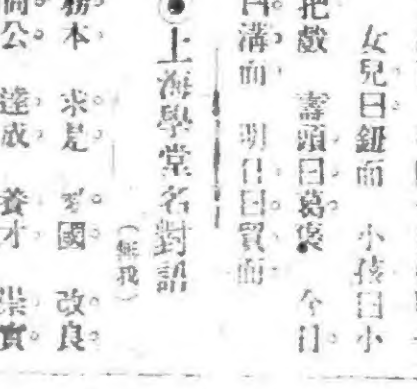 女兒曰鈕而　小孩曰小
把戲　壽頭曰葛褒　今日
曰溝而　明日曰貿而
●上海學堂名對語
（無我）
務本　求是　愛國　改良
尚公　達成　養才　崇實